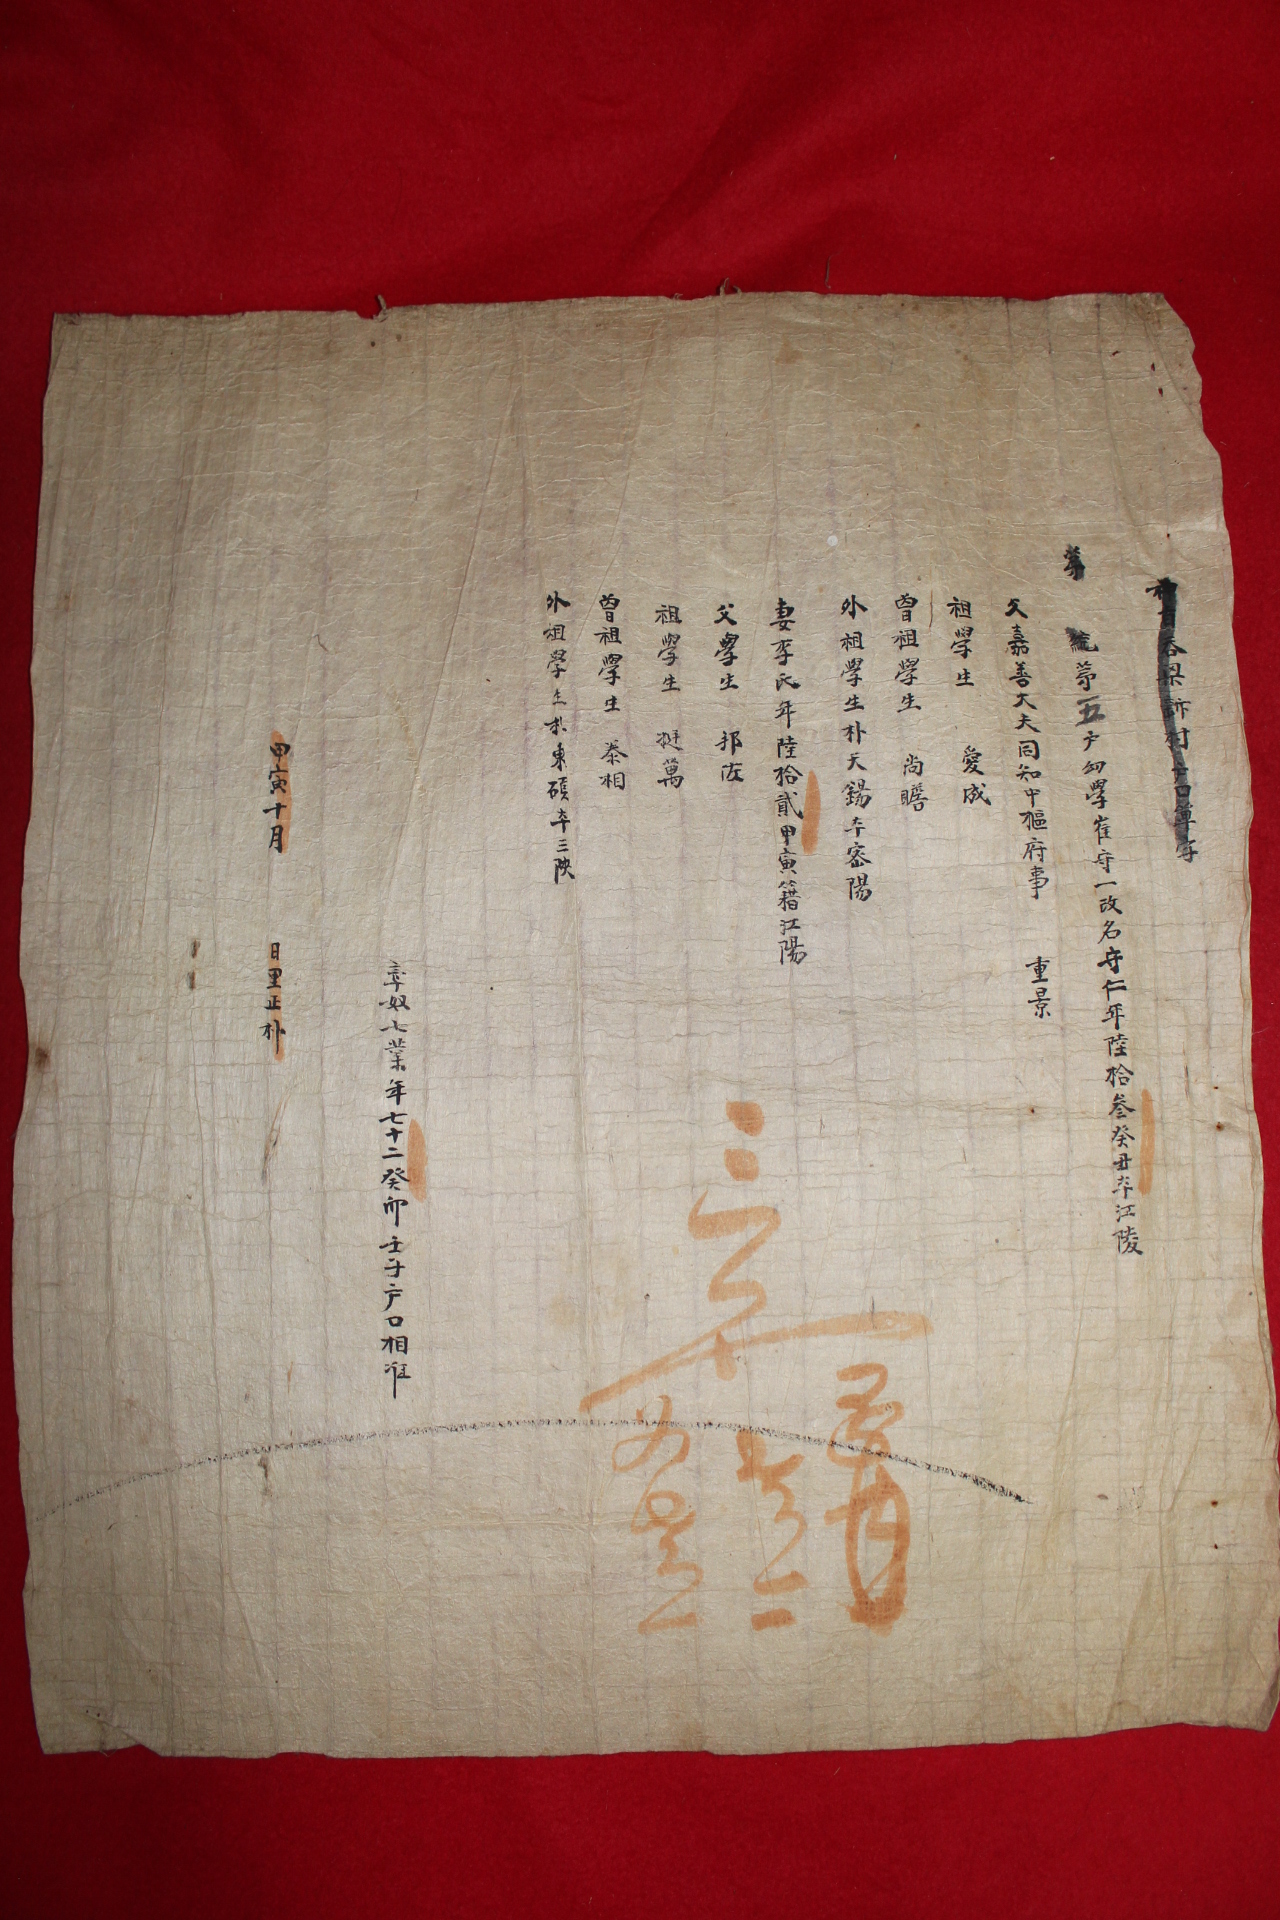 呑界 村戶口單字
第 統第五戶幼學崔守一改名守仁年陸拾叁癸丑本江陵
父嘉善大夫同知中樞府事 重景
祖學生 愛成
曾祖學生 尚瞻
外祖學生朴天錫本密陽
妻李氏年陸拾貳甲寅籍江陽
父學生 邦佐
祖學生 挺萬
曾祖學生 泰相
外祖學生朴東碩本三陟
率奴七業年七十二癸卯壬子戶口相准
甲寅十月 日里正朴